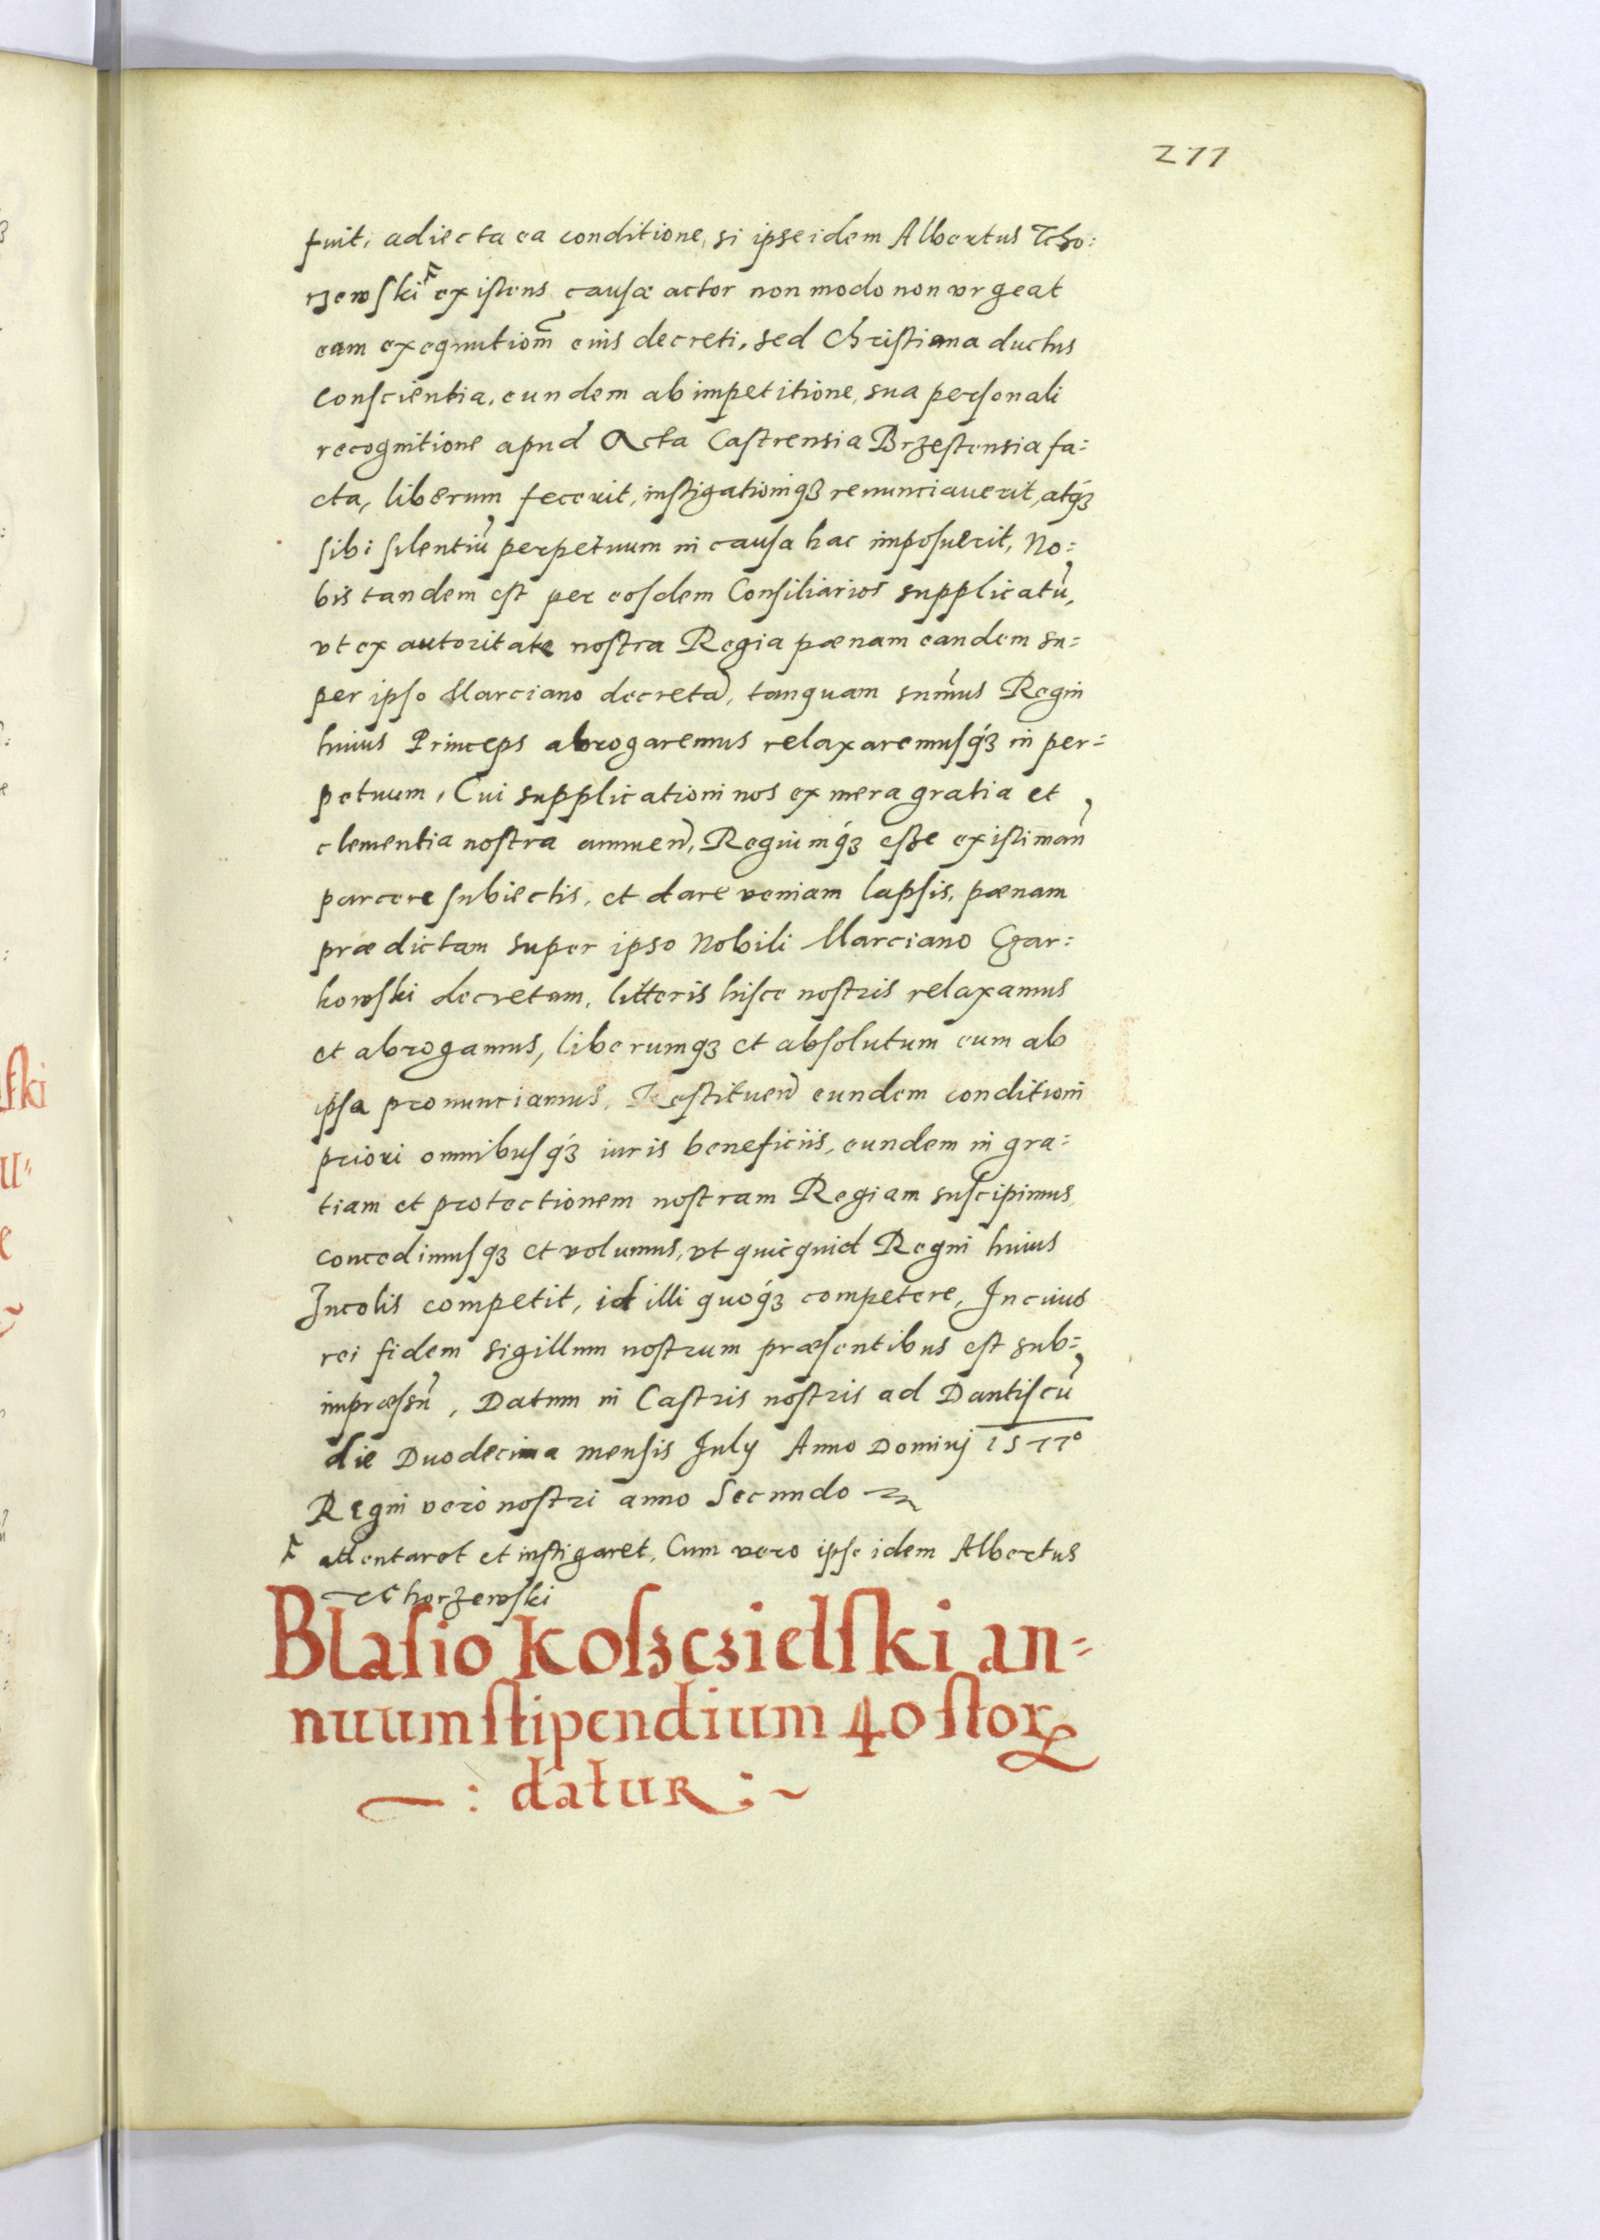 277
fuit, adiecta ea conditione, si ipse idem Albertus Tcho:
rzewski existens causæ actor non modo non vrgeat
eam exeqnutiom̃ eius decreti, sed Christiana ductus
conscientia, eundem ab impetitione, sua personali
recognitione apud Acta Castrensia Brzestensia fa:
cta, liberum fecerit, instigationiqȝ renunciauerit, atqȝ
sibi silentiũ perpetuum in causa hac imposuerit, No:
bis tandem est per eosdem Consiliarios supplicatũ,
vt ex autoritate nostra Regia pœnam eandem su=
per ipso Marciano decretã, tanquam sum̃us Regni
huius Princeps abrogaremus relaxaremusqȝ in per=
petuum, Cui supplicationi nos ex mera gratia et
clementia nostra annueñ, Regiumqȝ esse existimañ
parcere subiectis, et dare veniam lapsis, pœnam
prædictam super ipso Nobili Marciano Gar:
kowski decretam, litteris hisce nostris relaxamus
et abrogamus, liberumqȝ et absolutum eum ab
ipsa pronunciamus, Restitueñ eundem conditioni
priori omnibusqȝ iuris beneficiis, eundem in gra:
tiam et protectionem nostram Regiam suscipimus,
concedimusqȝ et volumus, vt quicquid Regni huius
Incolis competit, id illi quoqȝ competere, In cuius
rei fidem sigillum nostrum præsentibus est sub=
impræssũ, Datum in Castris nostris ad Dantiscũ
die Duodecima mensis July Anno Dominj 1577º
Regni vero nostri anno Secundo
attentaret et instigaret, Cum vero ipse idem Albertus
Tchorzewski
Blasio Kosczielski an=
nuum stipendium 40 flor
: datur :~
ski
u=
e